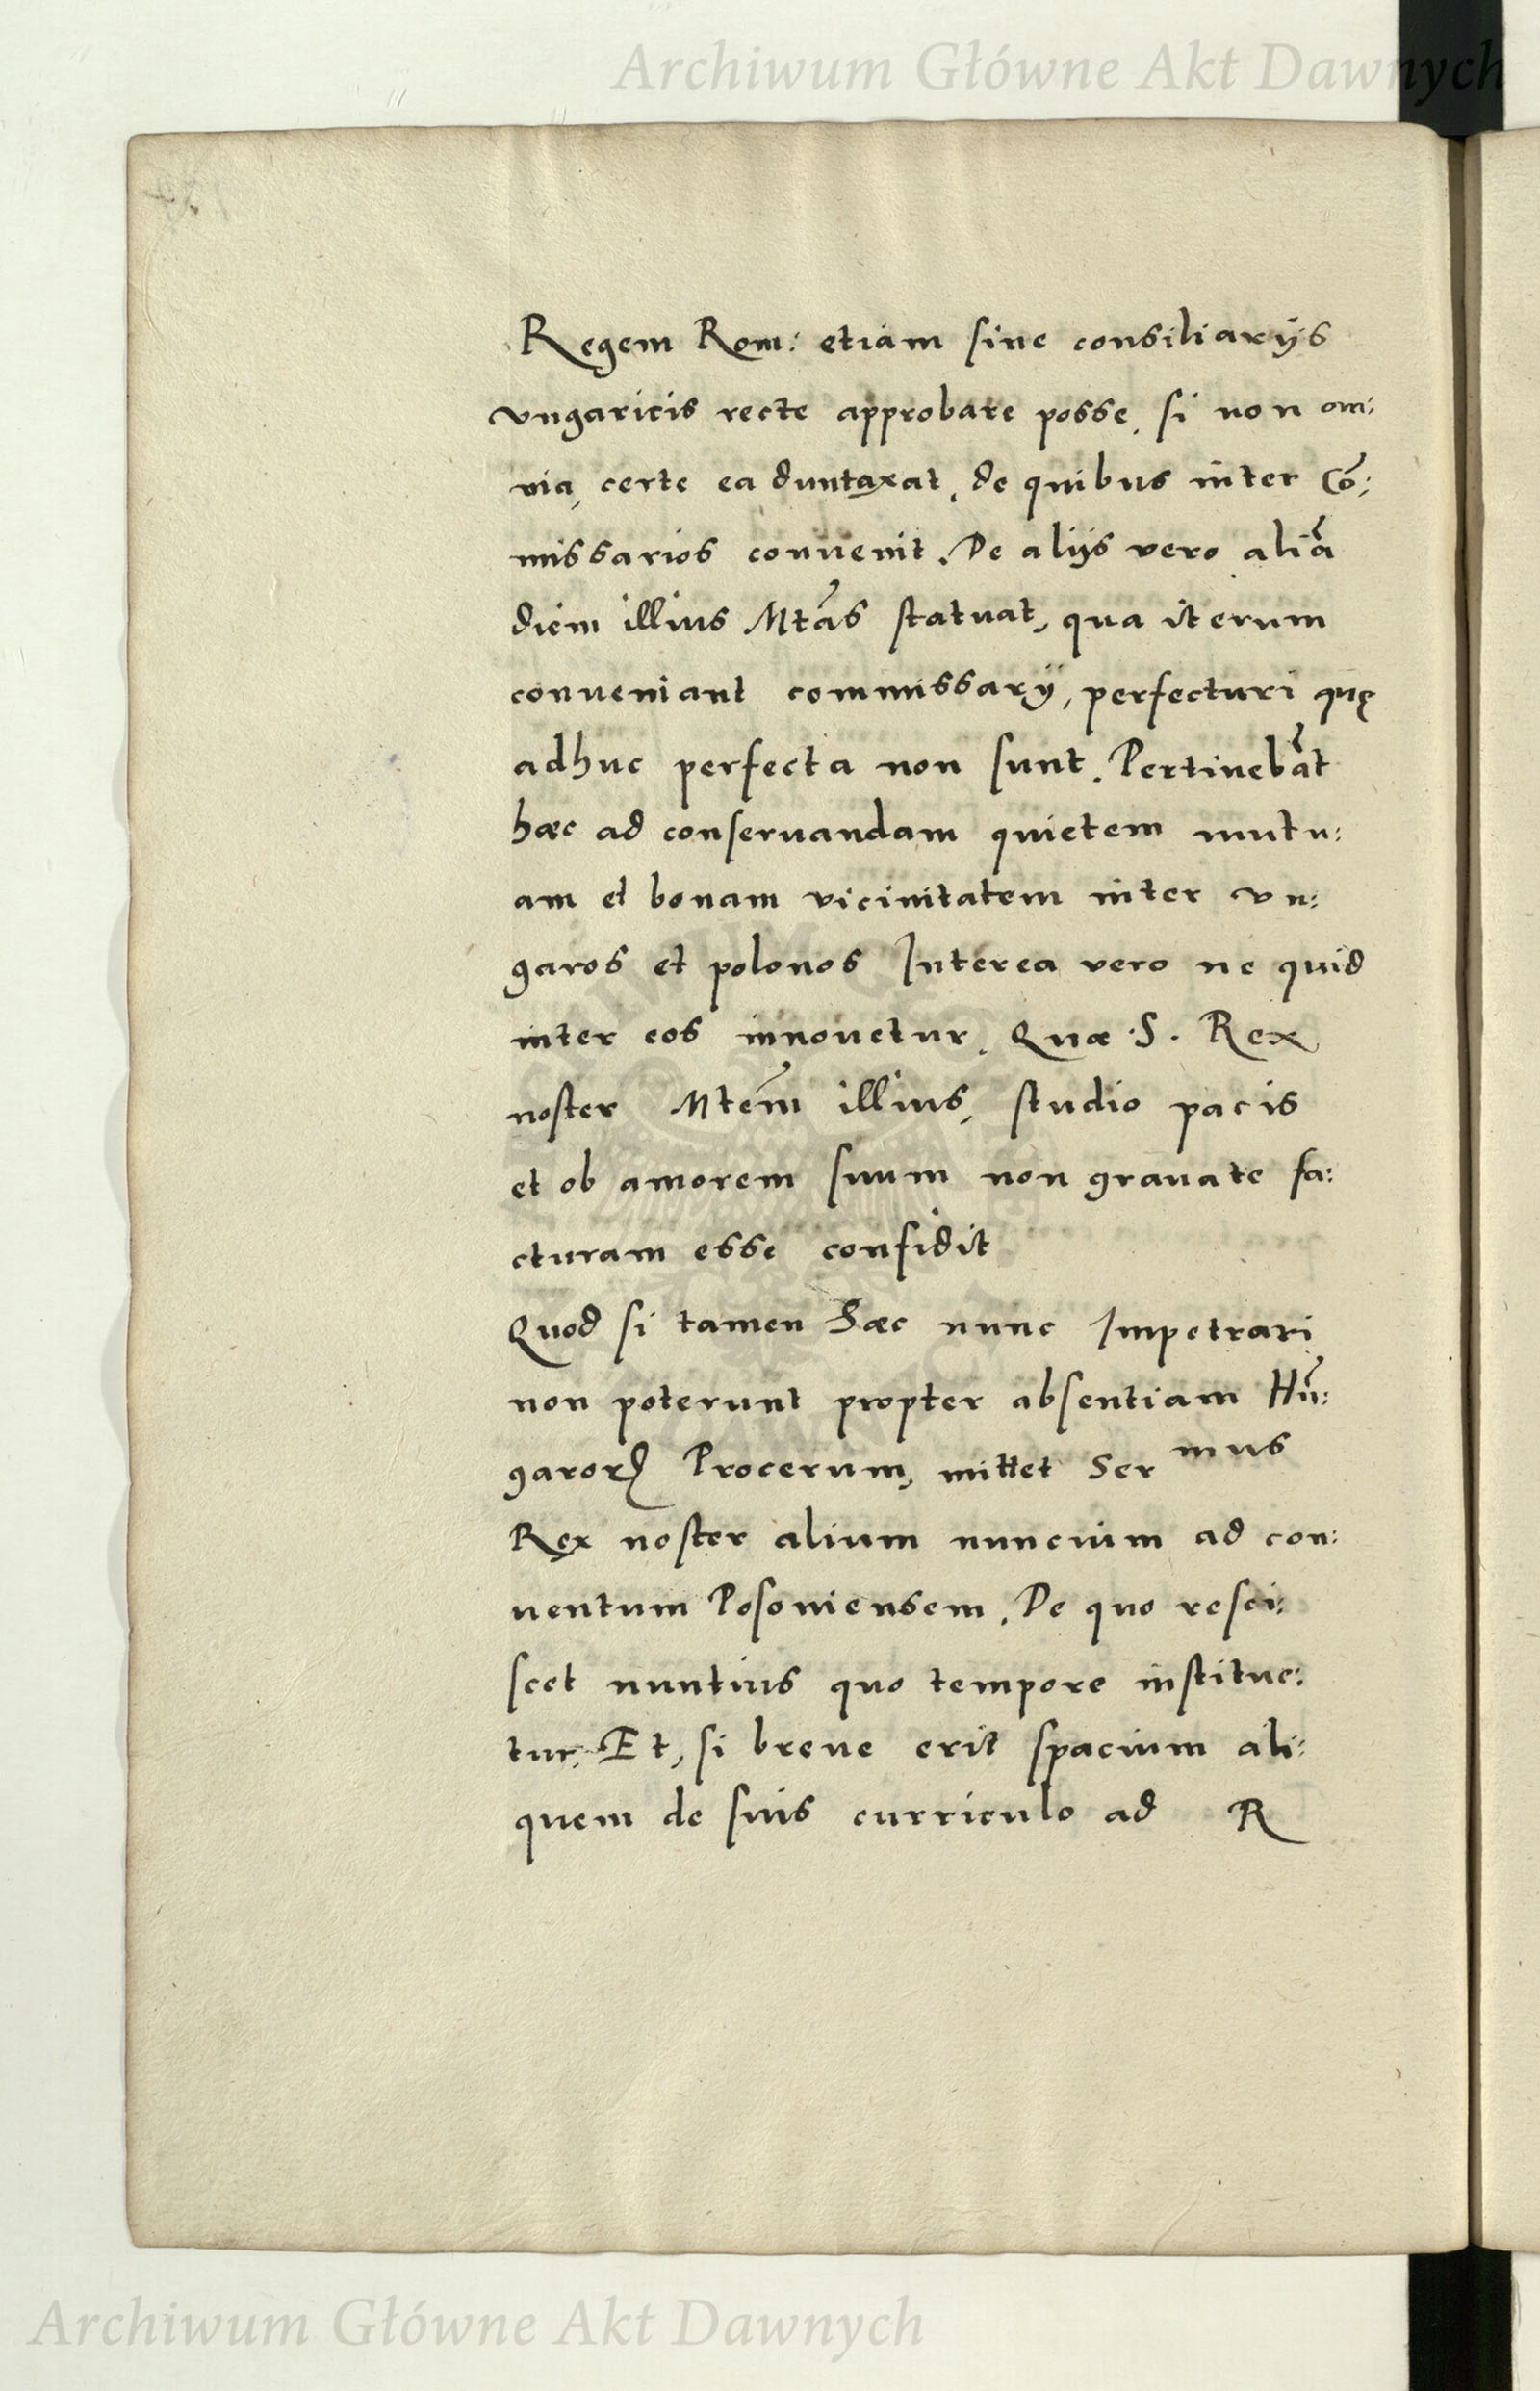 Archiwum Główne Akt Dawnych
Regem Rom: etiam sine consiliarijs
vngaricis recte approbare posse, si non om:
nia, certe ea duntaxat, de quibus inter Cõ:
missarios conuenit. De alijs vero aliã
diem illius Mtãs statuat, qua iterum
conueniant commissarij, perfecturi quę
adhuc perfecta non sunt. Pertinebãt
hæc ad conseruandam quietem mutu:
am et bonam vicinitatem inter vn:
garos et polonos Interea vero ne quid
inter eos innouetur, Quæ .S. Rex
noster Mtem̃ illius, studio pacis
et ob amorem suum non grauate fa:
cturam esse confidit
Quod si tamen hæc nunc Impetrari
non poterunt propter absentiam Hũ:
garorꝝ Procerum, mittet Ser mus
Rex noster alium nuncium ad con:
uentum Posoniensem. De quo resci:
scet nuntius quo tempore institue:
tur. Et, si breue erit spacium ali:
quem de suis curriculo ad R
Archiwum Główne Akt Dawnych